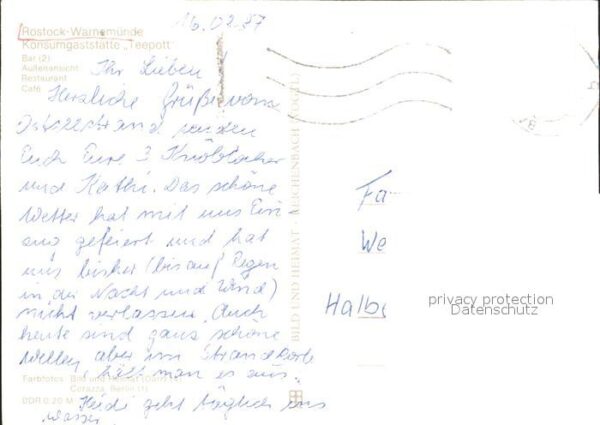 16.07.87
Rostock-Warnemünde
Konsumgaststätte „Teepott"
Bar (2)
Außenansicht
Restaurant
Café
Ihr Lieben!
Herzliche Grüße vom
Ostseestrand senden
Euch Eure 3
und Kathi. Das schöne
Wetter hat mit uns Ein-
zug gefeiert und hat
uns bisher (bis auf Regen
in der Nacht und Wind)
nicht verlassen. Auch
heute sind ganz schöne
Wellen, aber im Strandkorb
hält man es aus.
Farbfotos: Bild und Heimat
Corazza, Berlin (1)
DDR 0 20 M
Heidi geht täglich ins
Wasser.
BILD UND HEIMAT REICHENBACH (VOGTL)
Fa
We
Halb
privacy protection
Datenschutz